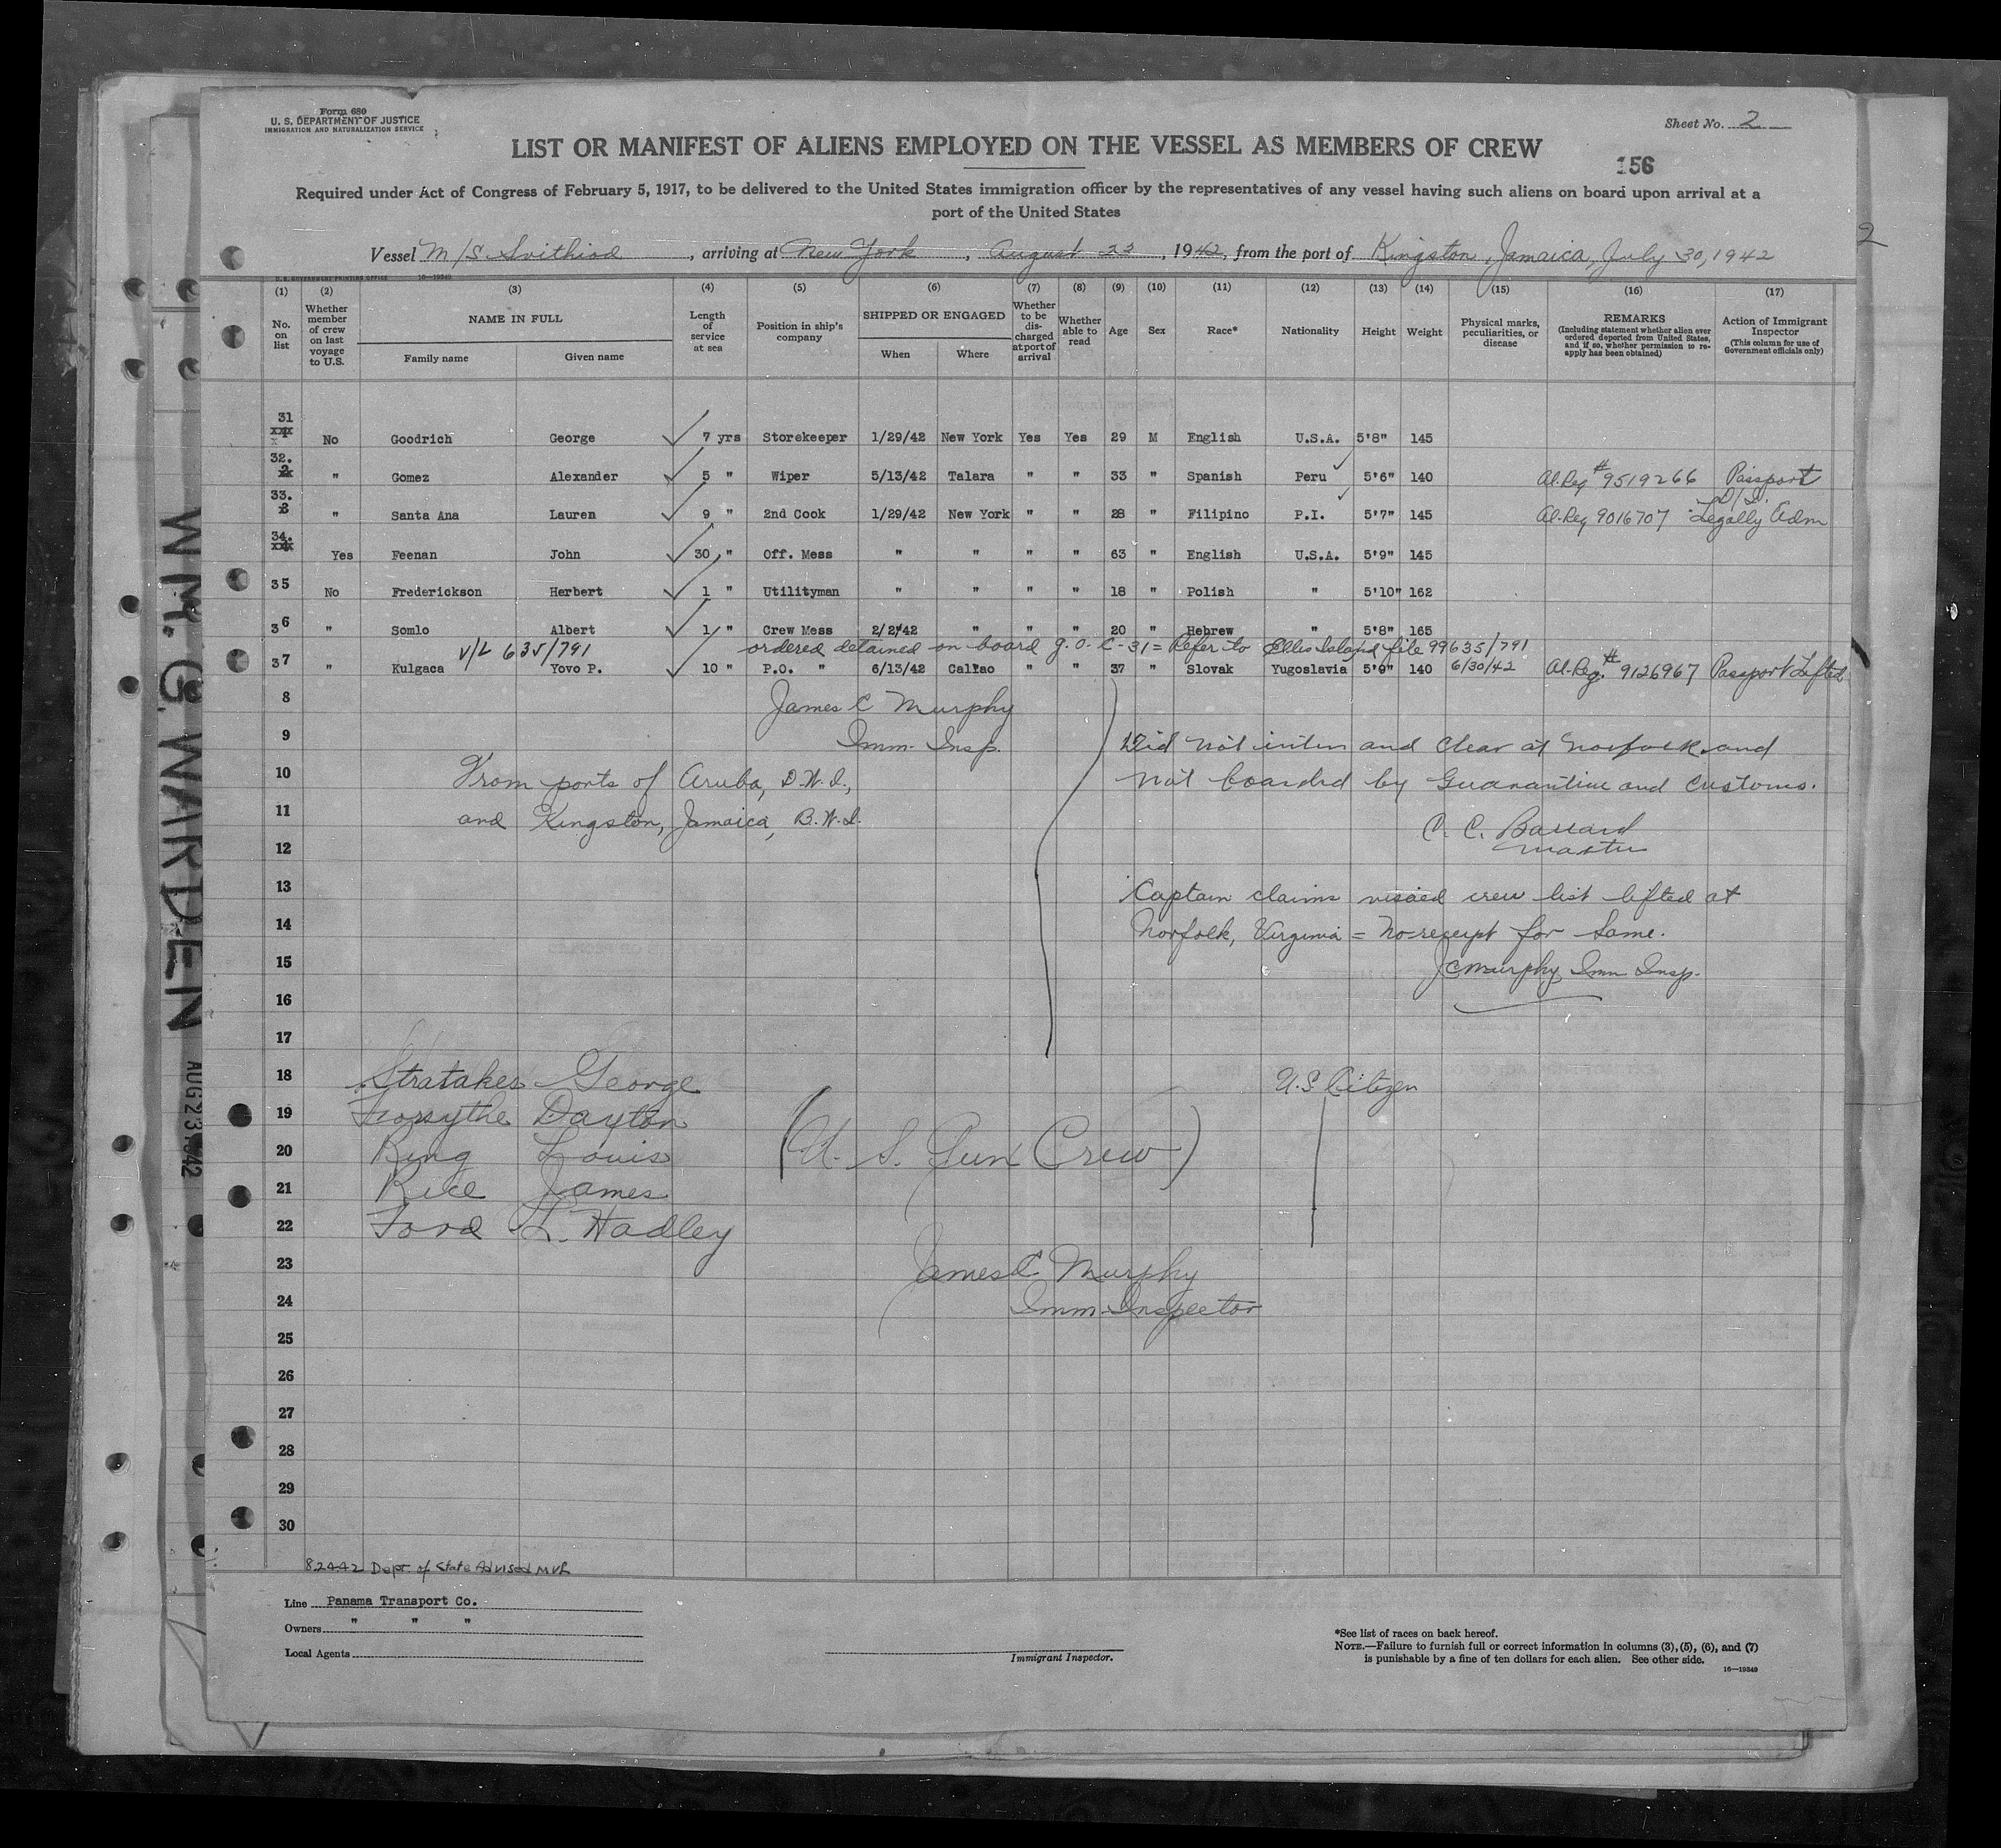 Form 680
U. S. DEPARTMENT OF JUSTICE
IMMIGRATION AND NATURALIZATION SERVICE
Sheet No. 2
LIST OR MANIFEST OF ALIENS EMPLOYED ON THE VESSEL AS MEMBERS OF CREW
156
Required under Act of Congress of February 5, 1917, to be delivered to the United States immigration officer by the representatives of any vessel having such aliens on board upon arrival at a
port of the United States
Vessel M/S Svithiod, arriving at New York, August 23, 1942, from the port of Kingston, Jamaica, July 30, 1942
2
U. S. GOVERNMENT PRINTING OFFICE 16—19349
(1) (2) (3) (4) (5) (6) (7) (8) (9) (10) (11) (12) (13) (14) (15) (16) (17)
No. on list
Whether member of crew on last voyage to U.S.
NAME IN FULL
Family name Given name
Length of service at sea
Position in ship's company
SHIPPED OR ENGAGED
When Where
Whether to be discharged at port of arrival
Whether able to read
Age
Sex
Race*
Nationality
Height
Weight
Physical marks, peculiarities, or disease
REMARKS
(Including statement whether alien ever ordered deported from United States, and if so, whether permission to reapply has been obtained)
Action of Immigrant Inspector
(This column for use of Government officials only)
31 No Goodrich George 7 yrs Storekeeper 1/29/42 New York Yes Yes 29 M English U.S.A. 5'8" 145
32. " Gomez Alexander 5 " Wiper 5/13/42 Talara " " 33 " Spanish Peru 5'6" 140 Al. Reg # 9519266 Passport
33. " Santa Ana Lauren 9 " 2nd Cook 1/29/42 New York " " 28 " Filipino P.I. 5'7" 145 Al. Reg 9016707 Legally Adm
34. Yes Feenan John 30 " Off. Mess " " " " 63 " English U.S.A. 5'9" 145
35 No Frederickson Herbert 1 " Utilityman " " " " 18 " Polish " 5'10" 162
36 " Somlo Albert 1 " Crew Mess 2/2/42 " " " 20 " Hebrew " 5'8" 165
V/L 635/791 ordered detained on board G.O. C-31 = Refer to Ellis Island file 99635/791
37 " Kulgaca Yovo P. 10 " P.O. " 6/13/42 Callao " " 37 " Slovak Yugoslavia 5'9" 140 6/30/42 Al. Reg. # 9126967 Passport Lifted
8 James C Murphy
Imm. Insp.
9 Did not enter and clear at Norfolk and
10 From ports of Aruba, D.W.I., not boarded by Quarantine and Customs.
11 and Kingston, Jamaica, B.W.I. C. C. Ballard
12 Master
13 Captain claims visaed crew list lifted at
14 Norfolk, Virginia = No receipt for same.
15 JC Murphy Imm Insp.
16
17
18 Stratakes George U.S. Citizen
19 Forsythe Dayton
20 Ring Louis (U. S. Gun Crew)
21 Rice James
22 Ford L. Hadley
23 James C Murphy
24 Imm. Inspector
25
26
27
28
29
30
82442 Dept. of State Advised MVR
Line Panama Transport Co.
Owners " " "
Local Agents
Immigrant Inspector.
*See list of races on back hereof.
NOTE.—Failure to furnish full or correct information in columns (3), (5), (6), and (7)
is punishable by a fine of ten dollars for each alien. See other side.
16—19349
WM. G. WARDEN
AUG 23 1942